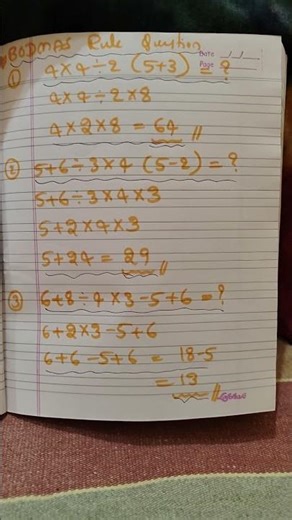 BODMAS Rule Question
Date / /
Page
① 4×4÷2 (5+3) = ?
4×4÷2×8
4×2×8 = 64 //
② 5+6÷3×4 (5-2) = ?
5+6÷3×4×3
5+2×4×3
5+24 = 29 //
③ 6+8÷4×3-5+6 = ?
6+2×3-5+6
6+6-5+6 = 18-5
= 13 //